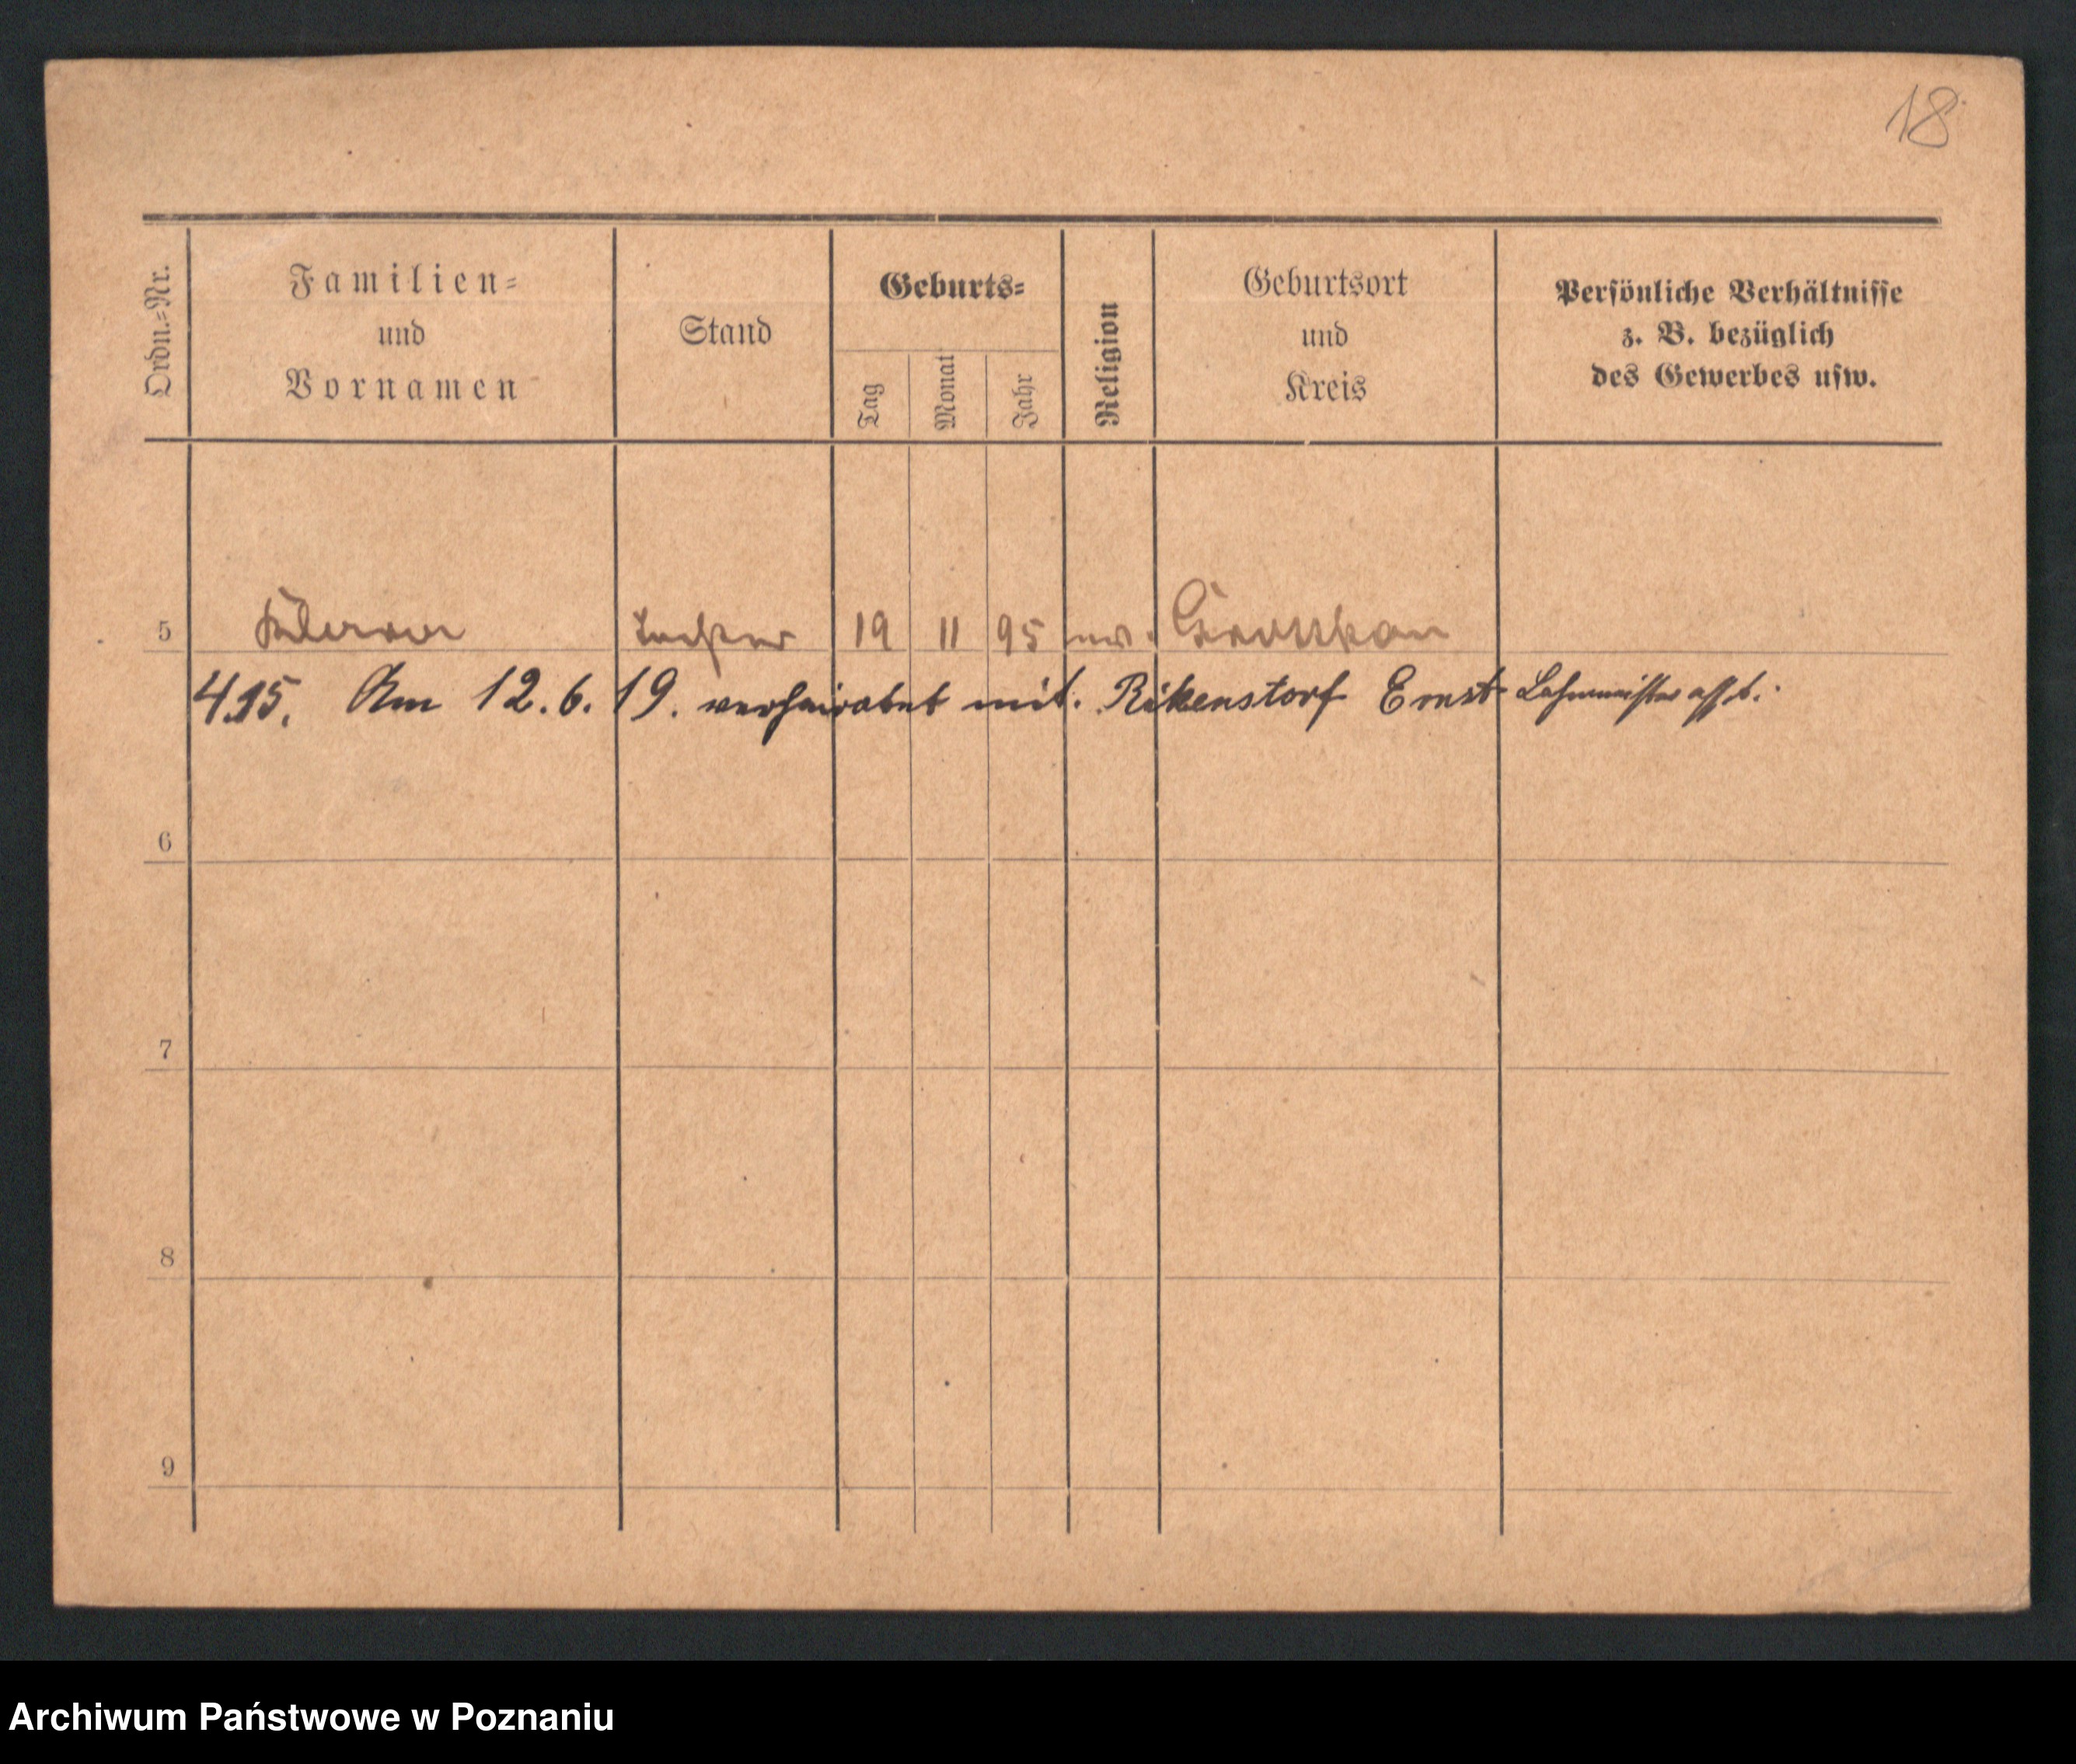 18
Ordn.=Nr.
Familien=
und
Vornamen
Stand
Geburts=
Tag
Monat
Jahr
Religion
Geburtsort
und
Kreis
Persönliche Verhältnisse
z. B. bezüglich
des Gewerbes usw.
5 Tochter 19 11 95
4.15. Am 12.6.19. verheiratet mit. Rikenstorf Ernst
6
7
8
9
Archiwum Państwowe w Poznaniu